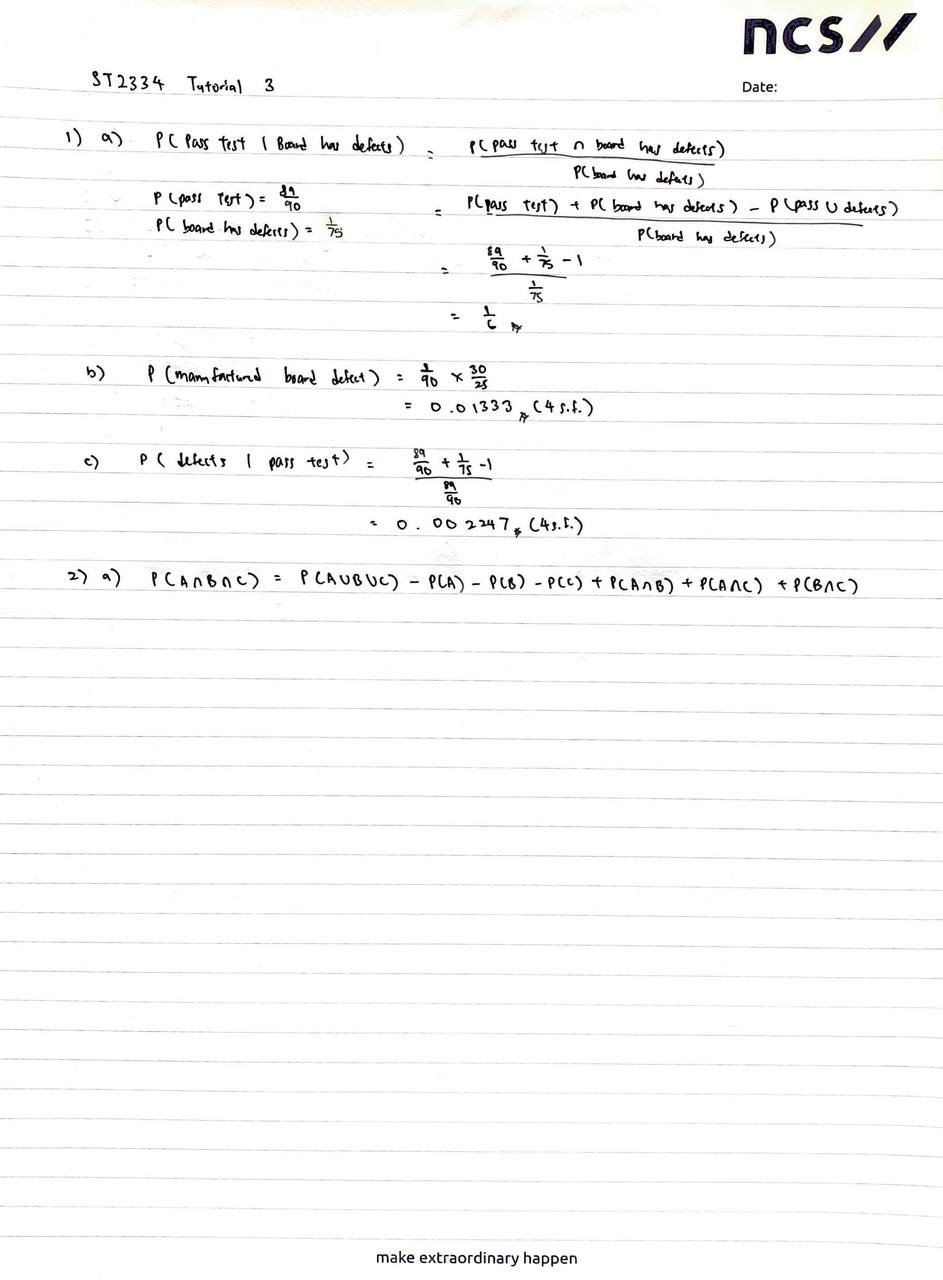 ncs//
ST2334 Tutorial 3
Date:
1) a) P(Pass test | Board has defects) = P(pass test ∩ board has defects) / P(board has defects)
P(pass test) = 89/90
= P(pass test) + P(board has defects) - P(pass ∪ defects) / P(board has defects)
P(board has defects) = 1/75
= 89/90 + 1/75 - 1 / 1/75
= 1/6
b) P(manufactured board defect) = 1/90 × 30/25
= 0.01333 (4 s.f.)
c) P(defects | pass test) = 89/90 + 1/75 - 1 / 89/90
= 0.002247 (4 s.f.)
2) a) P(A∩B∩C) = P(A∪B∪C) - P(A) - P(B) - P(C) + P(A∩B) + P(A∩C) + P(B∩C)
make extraordinary happen